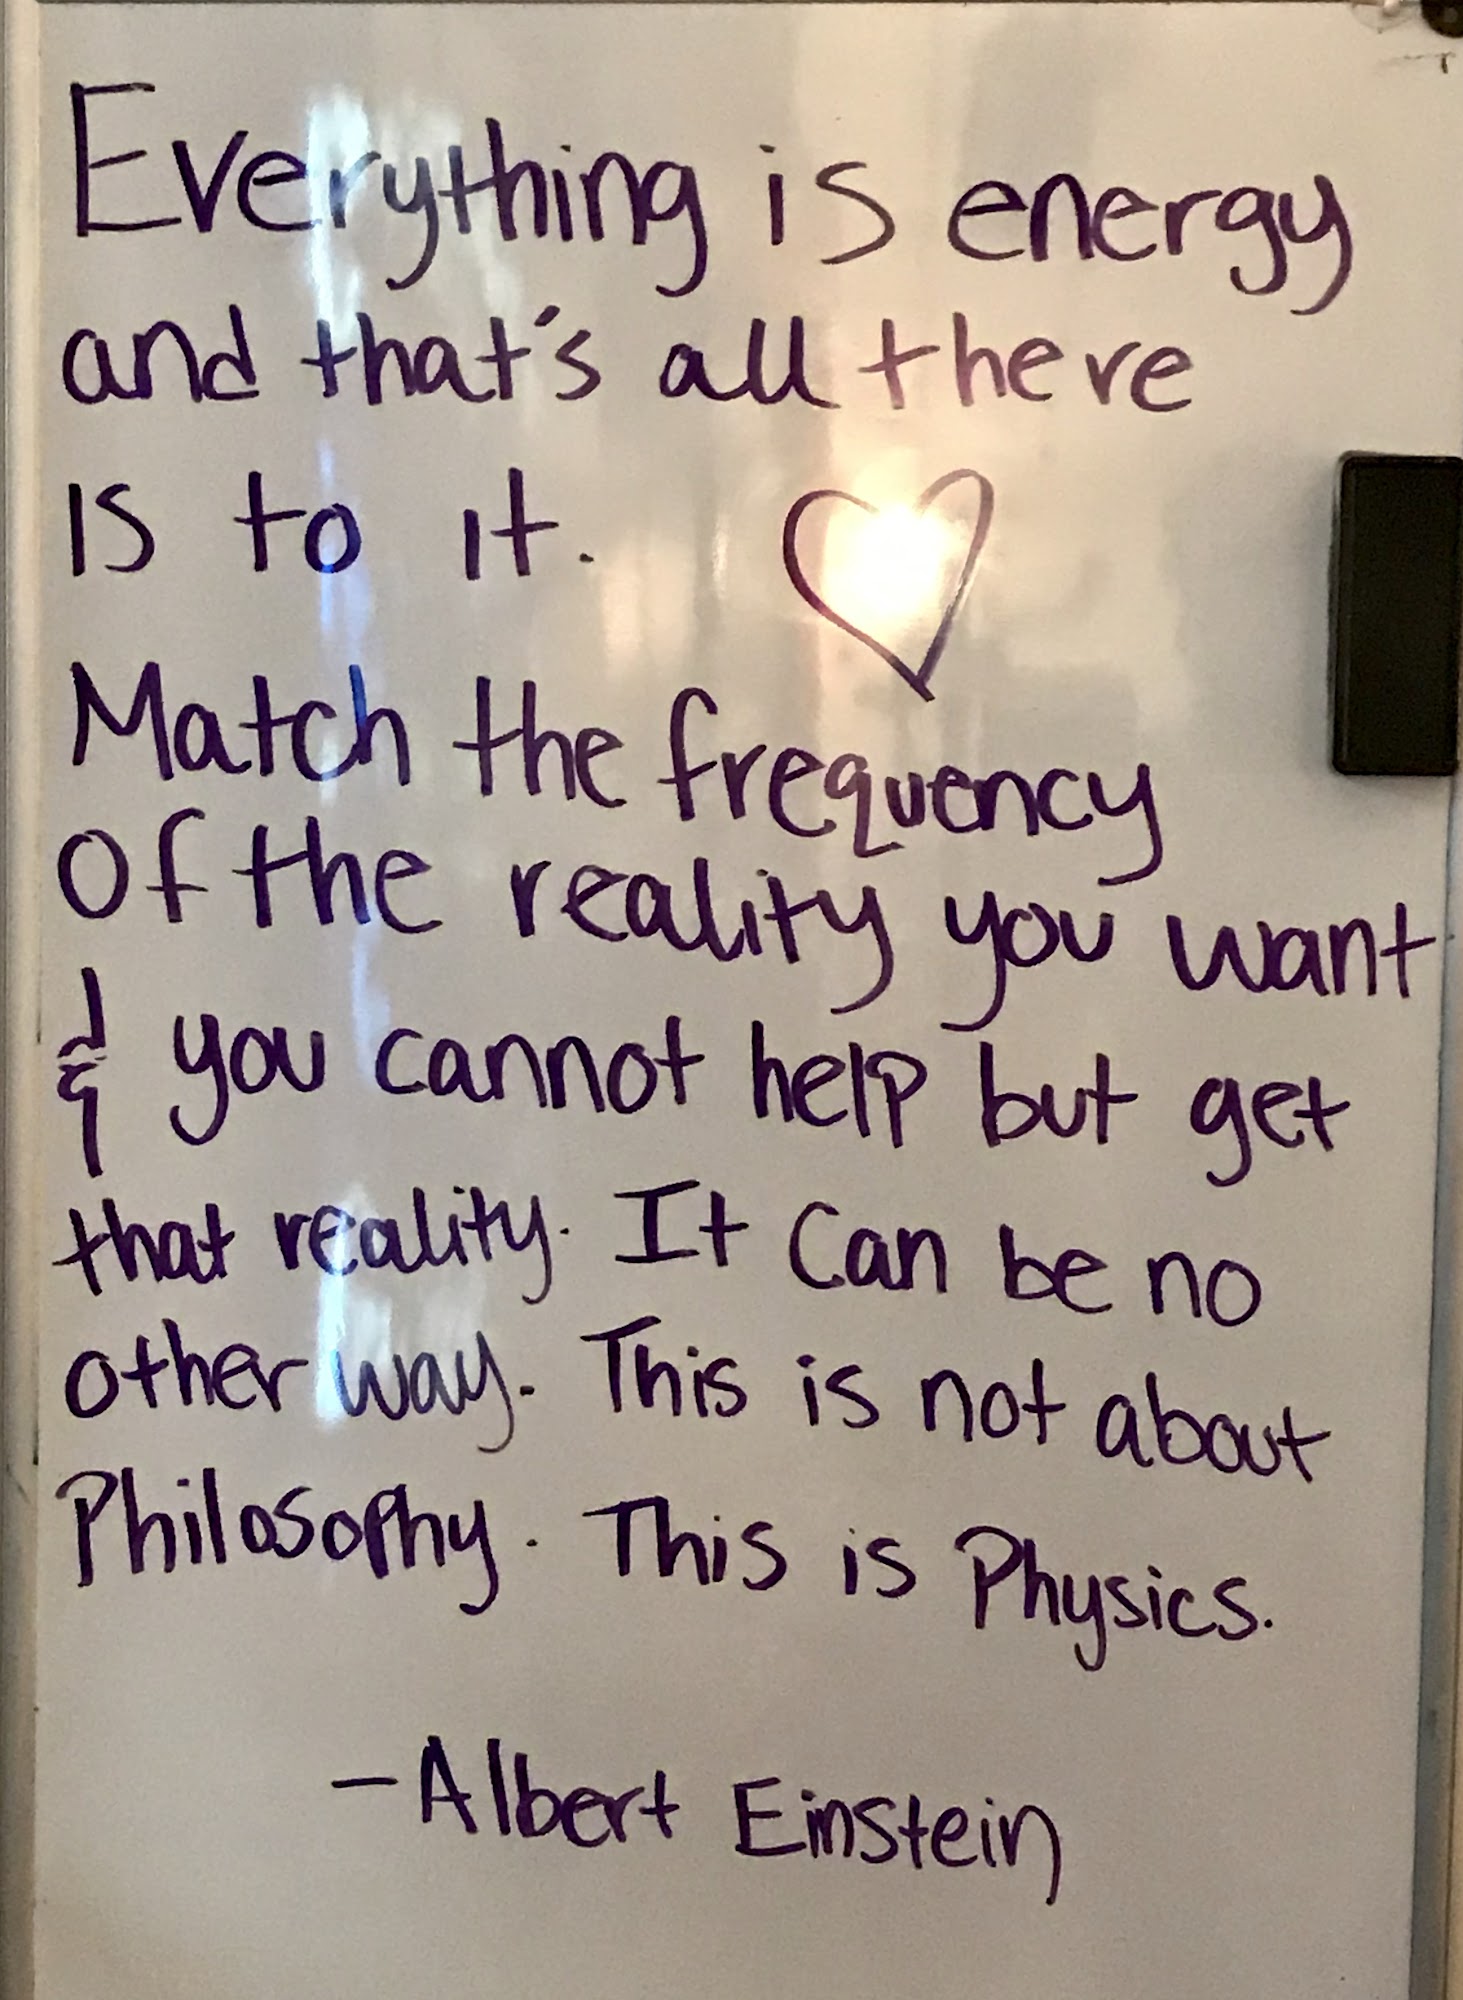 Everything is energy
and that's all there
is to it.
Match the frequency
of the reality you want
& you cannot help but get
that reality. It can be no
other way. This is not about
Philosophy. This is Physics.
-Albert Einstein